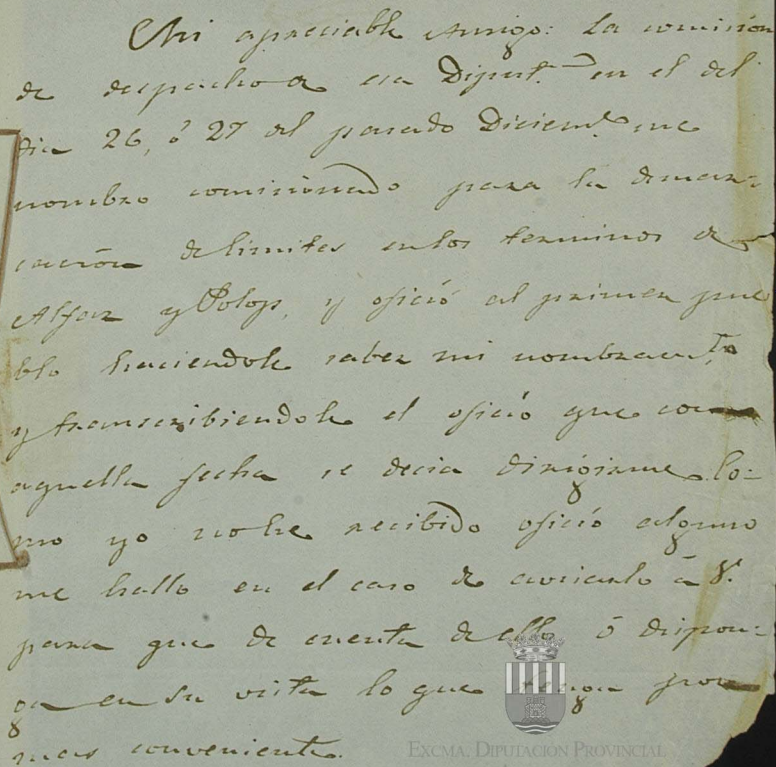 Mi apreciable Amigo: La comision
de despacho de esa Diput.n en el del
dia 26, ó 27 del pasado Diciem.e me
nombro comisionado para la demar-
cacion de limites en los terminos de
Alfaz y Polop, y ofició al primer pue
blo haciendole saber mi nombram.to
y transcribiendole el oficio que con
aquella fecha se decia dirigirme. Co-
mo yo no he recibido oficio alguno
me hallo en el caso de avisarlo á V.
para que de cuenta de ello ó dispon-
ga en su vista lo que tenga por
mas conveniente.
EXCMA. DIPUTACIÓN PROVINCIAL